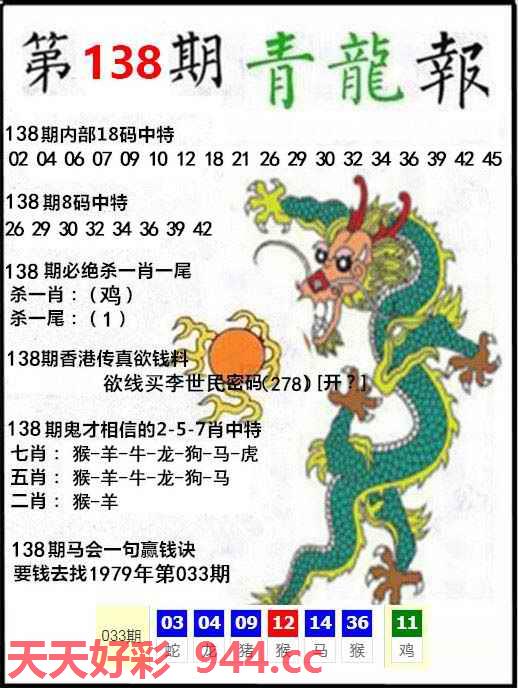 第138期青龍報
138期内部18码中特
02 04 06 07 09 10 12 18 21 26 29 30 32 34 36 39 42 45
138期8码中特
26 29 30 32 34 36 39 42
138期必绝杀一肖一尾
杀一肖：（鸡）
杀一尾：（1）
138期香港传真欲钱料
欲线买李世民密码(278）[开？]
138期鬼才相信的2-5-7肖中特
七肖： 猴-羊-牛-龙-狗-马-虎
五肖： 猴-羊-牛-龙-狗-马
二肖： 猴-羊
138期马会一句赢钱诀
要钱去找1979年第033期
033期 03 04 09 12 14 36 11
蛇 龙 猪 猴 马 猴 鸡
天天好彩 944.cc